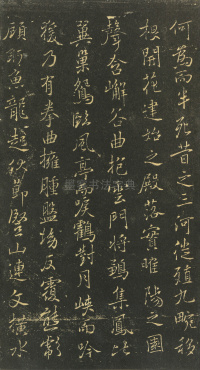 何為而半死昔之三河徙殖九畹移
根開花建始之殿落實睢陽之園
聲含嶰谷曲抱雲門將鶵集鳳比
翼巢鴛臨風亭而唳鶴對月峽而吟
猨乃有拳曲擁腫盤坳反覆熊彪
顧眄魚龍起伏節豎山連文橫水